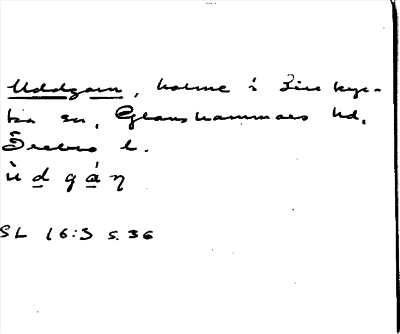 Uddgarn, holme i Lillkyr-
ka sn, Glanshammars hd,
Örebro l.
ù d g á n
SL 16:3 s. 36